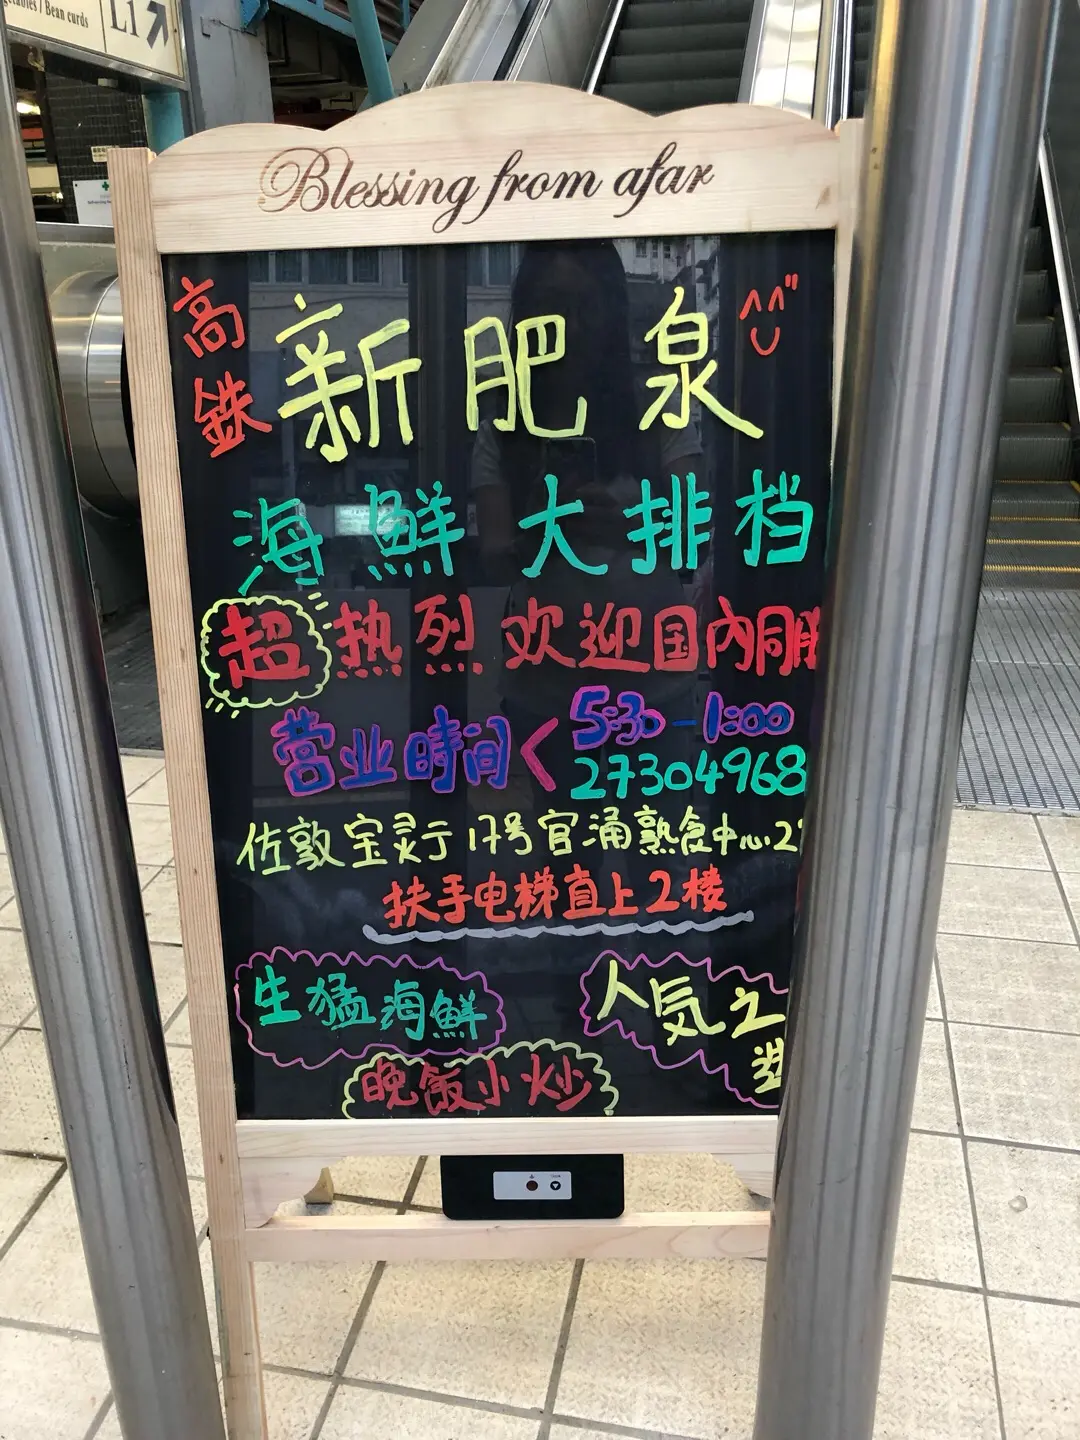 getables / Bean curds
L1
Blessing from afar
高鉄
新肥泉
海鲜大排档
超热烈欢迎国內同胞
营业時间 < 5:30-1:00
27304968
佐敦宝灵亍17号官涌熟食中心2
扶手电梯直上2楼
生猛海鲜
人気之选
晚飯小炒